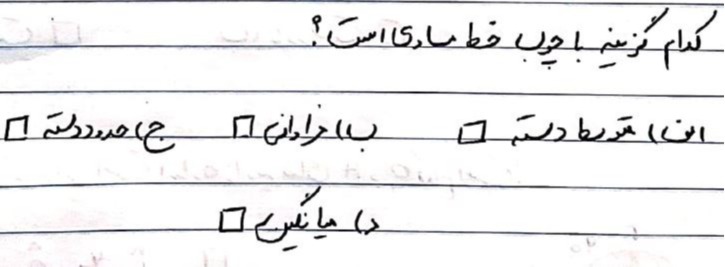 کدام گزینه با چوب خط مساوی است؟
الف) متوسط دسته □ ب) فراوانی □ ج) حدود دسته □
د) میانگین □